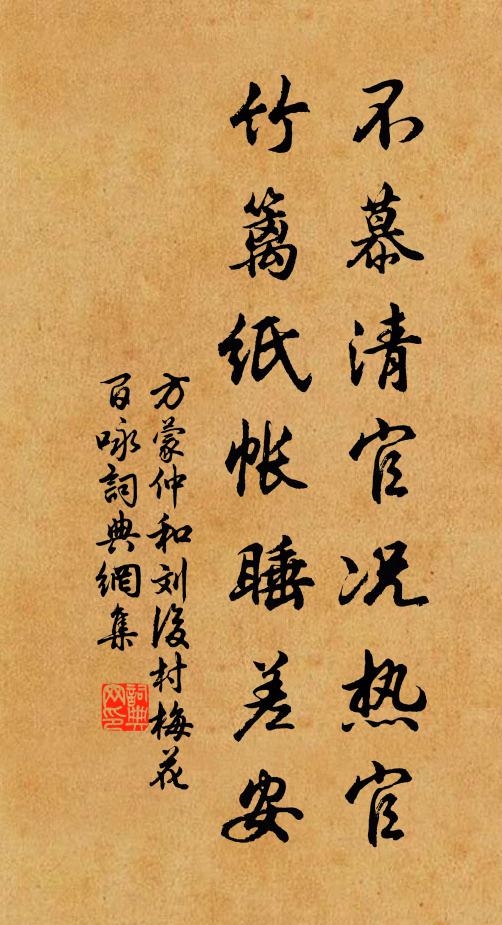 不慕清官况热官
竹篱纸帐睡差安
方蒙仲和刘後村梅花
百咏詞典網集
詞典
网印